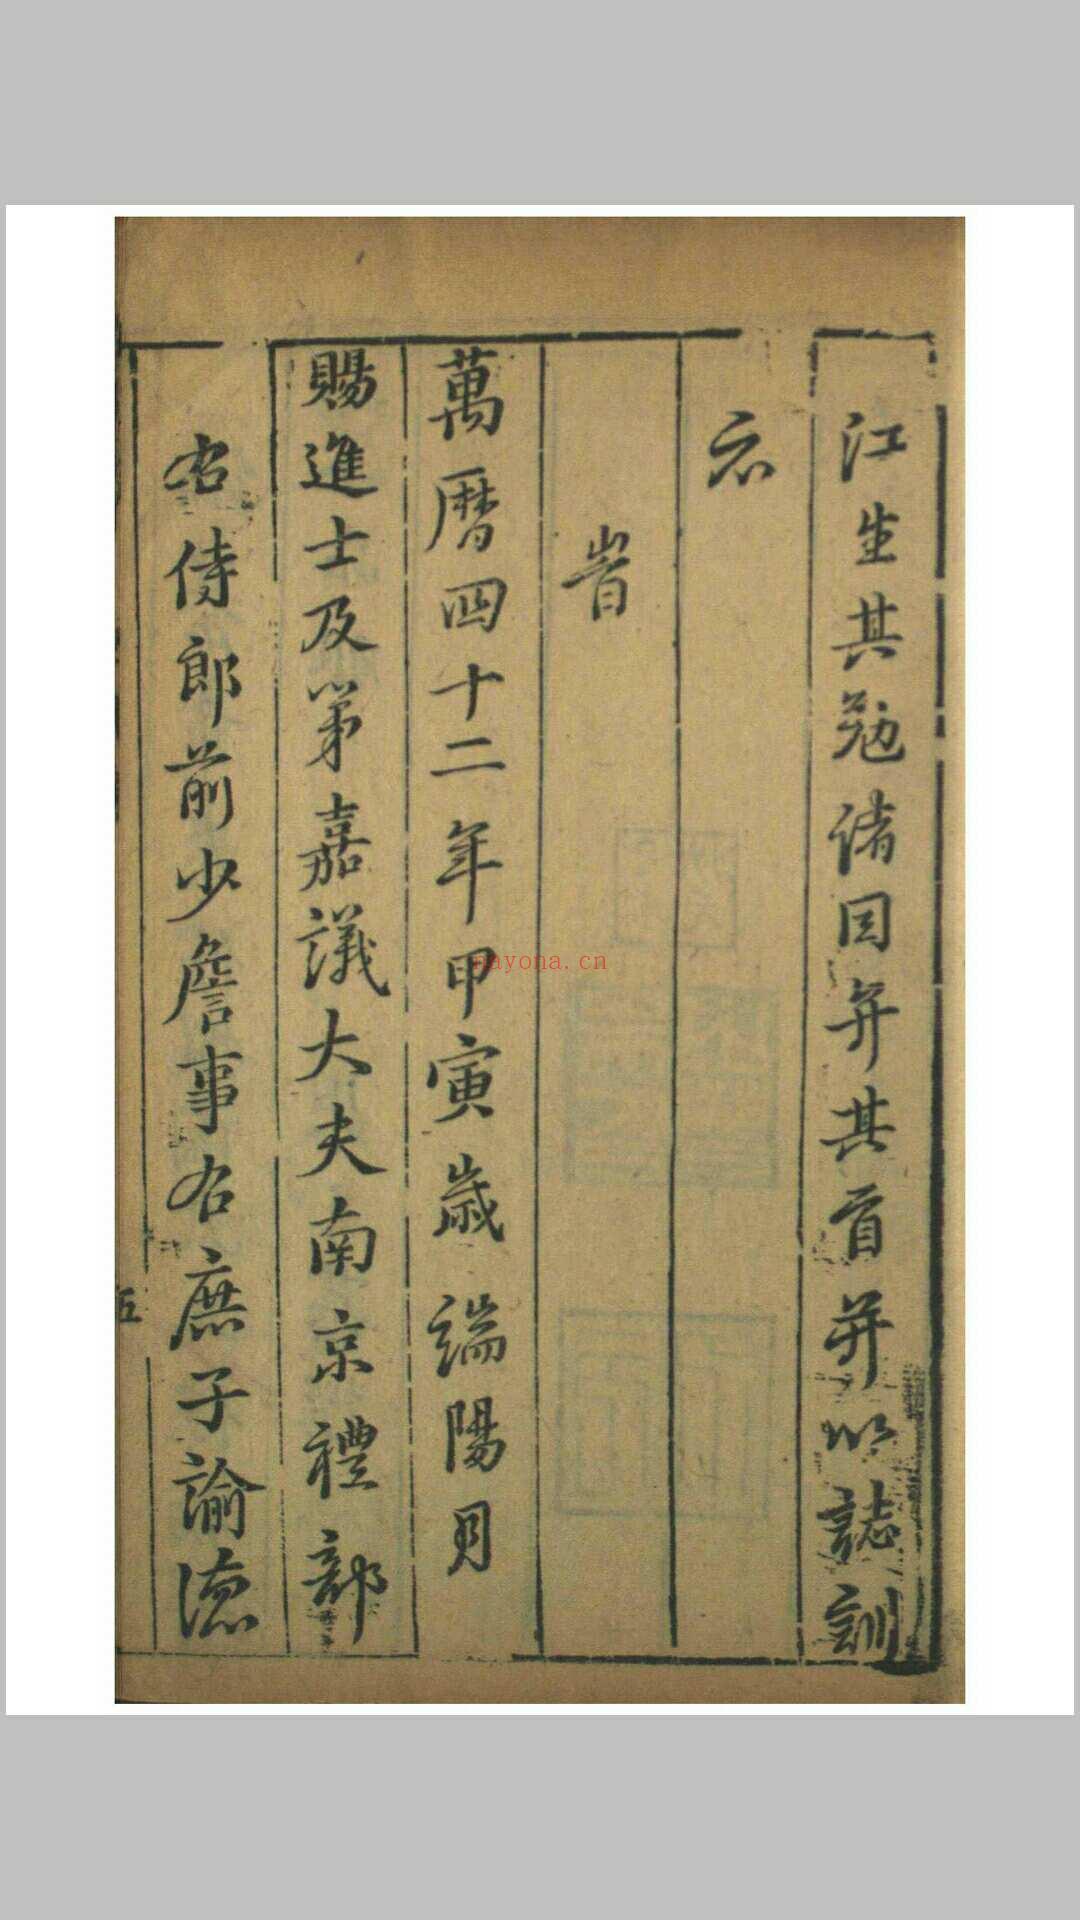 江生其勉諸因弁其首并以誌訓
示
旹
萬曆四十二年甲寅歲端陽月
賜進士及第嘉議大夫南京禮部
右侍郎前少詹事右庶子諭德
五
nayona.cn